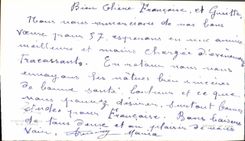 Bien Chère Françoise, et Ginette
Nous vous remercions de vos bons
vœux pour 57, espérons en une année
meilleure et moins chargée d'événem
Fracassants. En retour nous vous
envoyons les nôtres bien sincères
de bonne santé bonheur et ce que
vous pouvez désirer, surtout bonnes
études pour Françoise. Bons baisers
de tous deux et au plaisir de vous
voir. Maria